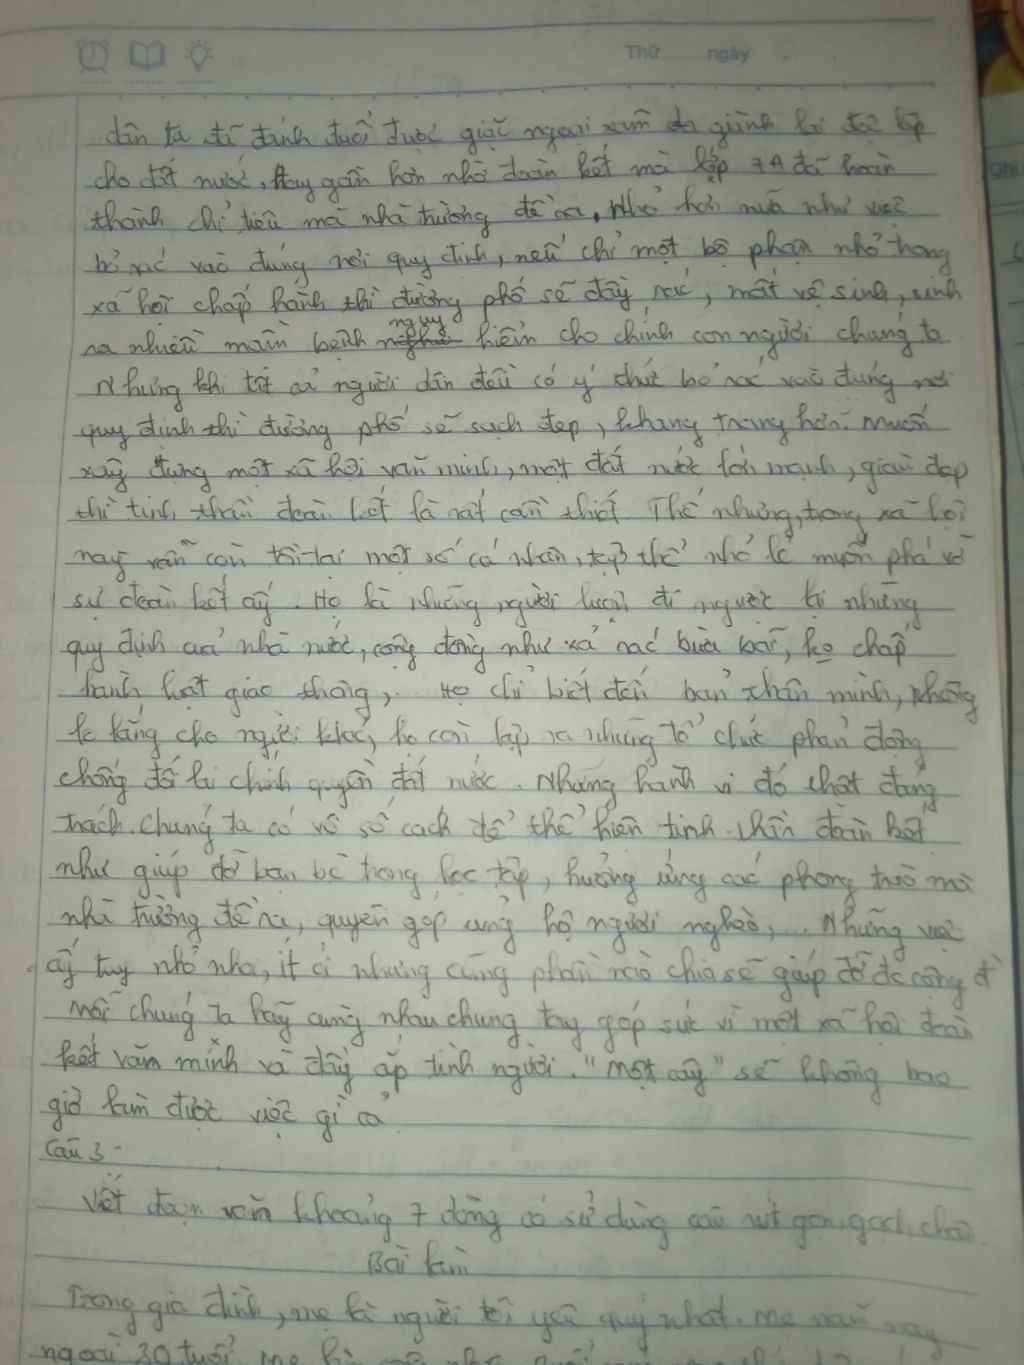 Thứ ngày
dân ta đã đánh đuổi được giặc ngoại xâm giành lại độc lập
cho đất nước. Hay gần hơn nhờ đoàn kết mà lớp 7A đã hoàn
thành chỉ tiêu mà nhà trường đề ra. Nhỏ hơn nữa như việc
bỏ rác vào đúng nơi quy định, nếu chỉ một bộ phận nhỏ trong
xã hội chấp hành thì đường phố sẽ đầy rác, mất vệ sinh, sinh
ra nhiều mầm bệnh nguy hiểm cho chính con người chúng ta
Nhưng khi tất cả người dân đều có ý thức bỏ rác vào đúng nơi
quy định thì đường phố sẽ sạch đẹp, khang trang hơn. Muốn
xây dựng một xã hội văn minh, một đất nước lớn mạnh, giàu đẹp
thì tinh thần đoàn kết là rất cần thiết. Thế nhưng, trong xã hội
nay vẫn còn tồn tại một số cá nhân, tập thể nhỏ lẻ muốn phá vỡ
sự đoàn kết ấy. Họ là những người luôn đi ngược lại những
quy định của nhà nước, cộng đồng như xả rác bừa bãi, ko chấp
hành luật giao thông,... Họ chỉ biết đến bản thân mình, không
lo lắng cho người khác, họ còn lập ra những tổ chức phản động
chống đối lại chính quyền đất nước. Những hành vi đó thật đáng
trách. Chúng ta có vô số cách để thể hiện tinh thần đoàn kết
như giúp đỡ bạn bè trong học tập, hưởng ứng các phong trào mà
nhà trường đề ra, quyên góp ủng hộ người nghèo,... Những việc
ấy tuy nhỏ nhoi, ít ỏi nhưng cũng phần nào chia sẻ giúp đỡ đc cộng đ
Mỗi chúng ta hãy cùng nhau chung tay góp sức vì một xã hội đoàn
kết văn minh và đầy ắp tình người. "Một cây" sẽ không bao
giờ làm được việc gì cả
Câu 3:
Viết đoạn văn khoảng 7 dòng có sử dụng câu rút gọn, gạch chân
Bài làm
Trong gia đình, mẹ là người tôi yêu quý nhất. Mẹ năm nay
ngoài 30 tuổi. Mẹ